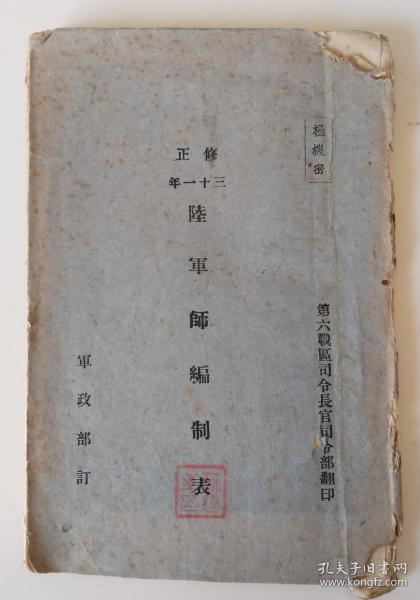 極機密
第六戰區司令長官司令部翻印
修正
三十一年
陸軍師編制表
軍政部訂
孔夫子旧书网
www.kongfz.com